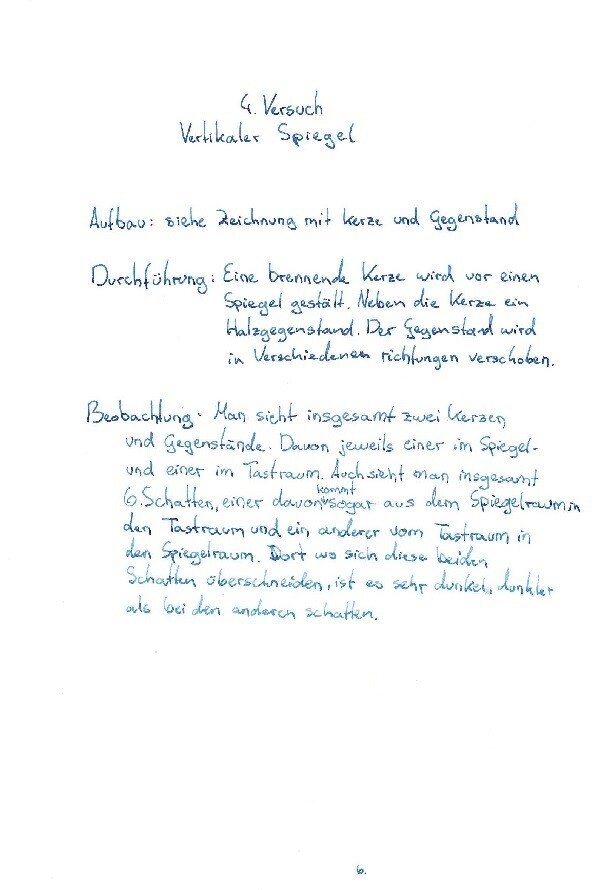 4. Versuch
Vertikaler Spiegel
Aufbau: siehe Zeichnung mit Kerze und Gegenstand
Durchführung: Eine brennende Kerze wird vor einen
Spiegel gestält. Neben die Kerze ein
Holzgegenstand. Der Gegenstand wird
in Verschiedenen richtungen verschoben.
Beobachtung: Man sieht insgesamt zwei Kerzen
und Gegenstände. Davon jeweils einer im Spiegel-
und einer im Tastraum. Auch sieht man insgesamt
6. Schatten, einer davon kommt sogar aus dem Spiegelraum in
den Tastraum und ein anderer vom Tastraum in
den Spiegelraum. Dort wo sich diese beiden
Schatten überschneiden, ist es sehr dunkel, dunkler
als bei den anderen schatten.
6.